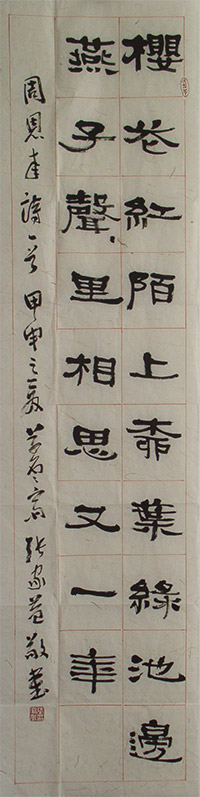 櫻花紅陌上柳葉綠池邊
燕子聲、里相思又一年
周恩來詩一首 甲申之夏 齋 張家益敬書